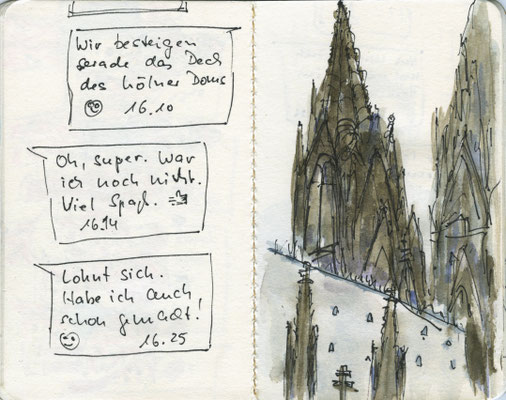 Wir besteigen
gerade das Dach
des Kölner Doms
☺ 16.10
Oh, super. War
ich noch nicht.
Viel Spaß.
16.14
Lohnt sich.
Habe ich auch
schon gemacht!
☺ 16.25